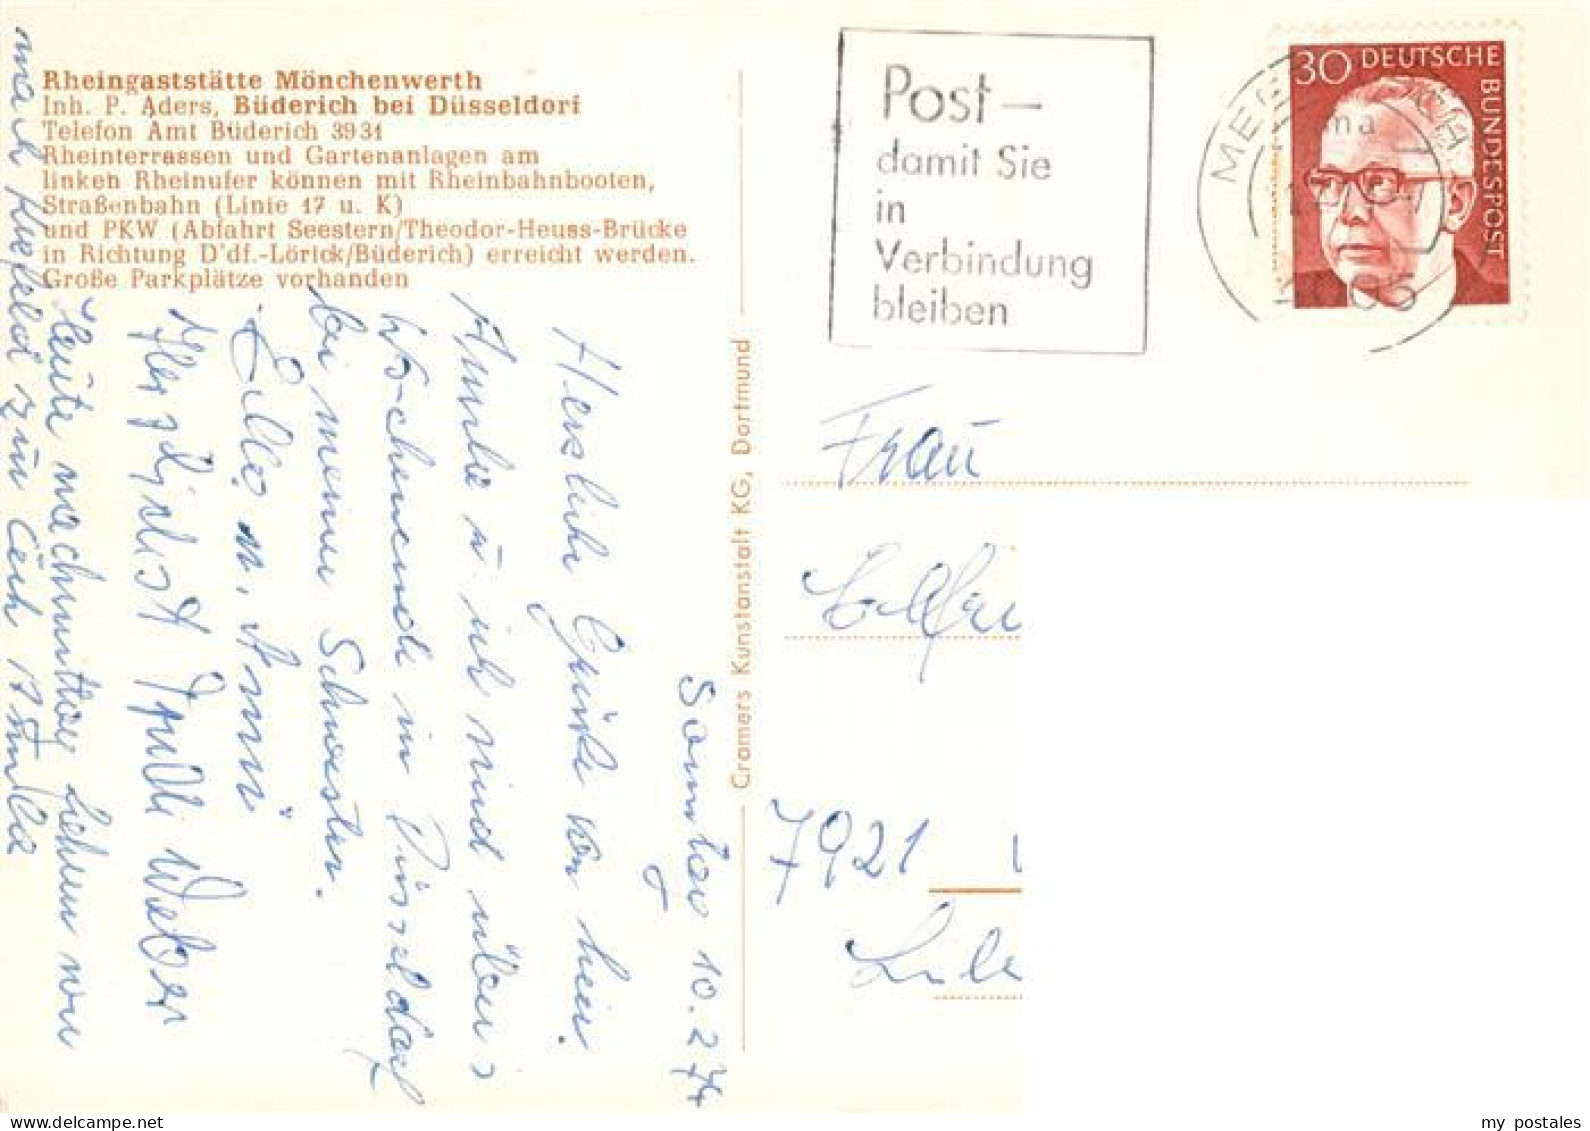 Rheingaststätte Mönchenwerth
Inh. P. Aders, Büderich bei Düsseldorf
Telefon Amt Büderich 3931
Rheinterrassen und Gartenanlagen am
linken Rheinufer können mit Rheinbahnbooten,
Straßenbahn (Linie 17 u. K)
und PKW (Abfahrt Seestern/Theodor-Heuss-Brücke
in Richtung D'df.-Lörick/Büderich) erreicht werden.
Große Parkplätze vorhanden
Samstag 10.2.74
Herzliche Grüße von hier.
u. ich sind übers
Wochenende in Düsseldorf
bei meiner Schwester.
Anni
Herzlichst Weber
Heute nachmittag fahren wir
nach Krefeld zu
Cramers Kunstanstalt KG, Dortmund
Post –
damit Sie
in
Verbindung
bleiben
30 DEUTSCHE
BUNDESPOST
Frau
7921
my postales